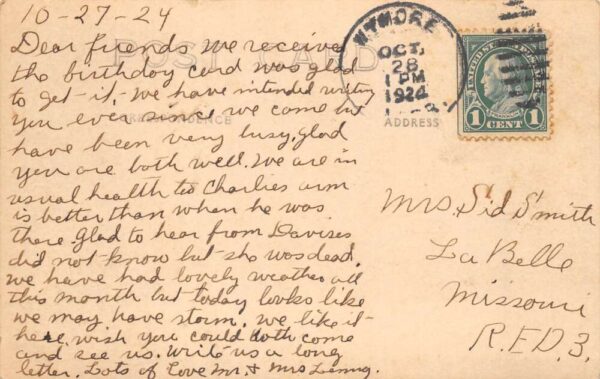 10-27-24
Dear friends we receive
the birthday card was glad
to get it, - we have intended writing
you ever since we came but
have been very busy, glad
you are both well. We are in
usual health tis Charlies arm
is better than when he was
there Glad to hear from Davises
did not know but she was dead.
we have had lovely weather all
this month but today looks like
we may have storm. we like it
here, wish you could both come
and see us. Write us a long
letter. Lots of love Mr. & Mrs
POST CARD
CORRESPONDENCE
ADDRESS
WTMORE
OCT.
28
1 PM
1924
UNITED STATES POSTAGE
1 CENT 1
Mrs. Sid Smith
La Belle
Missouri
R.F.D. 3.